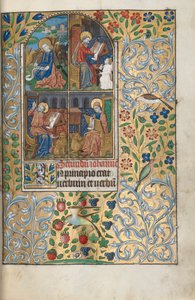 Secundum Iohannem
In principio erat
verbum et verbum